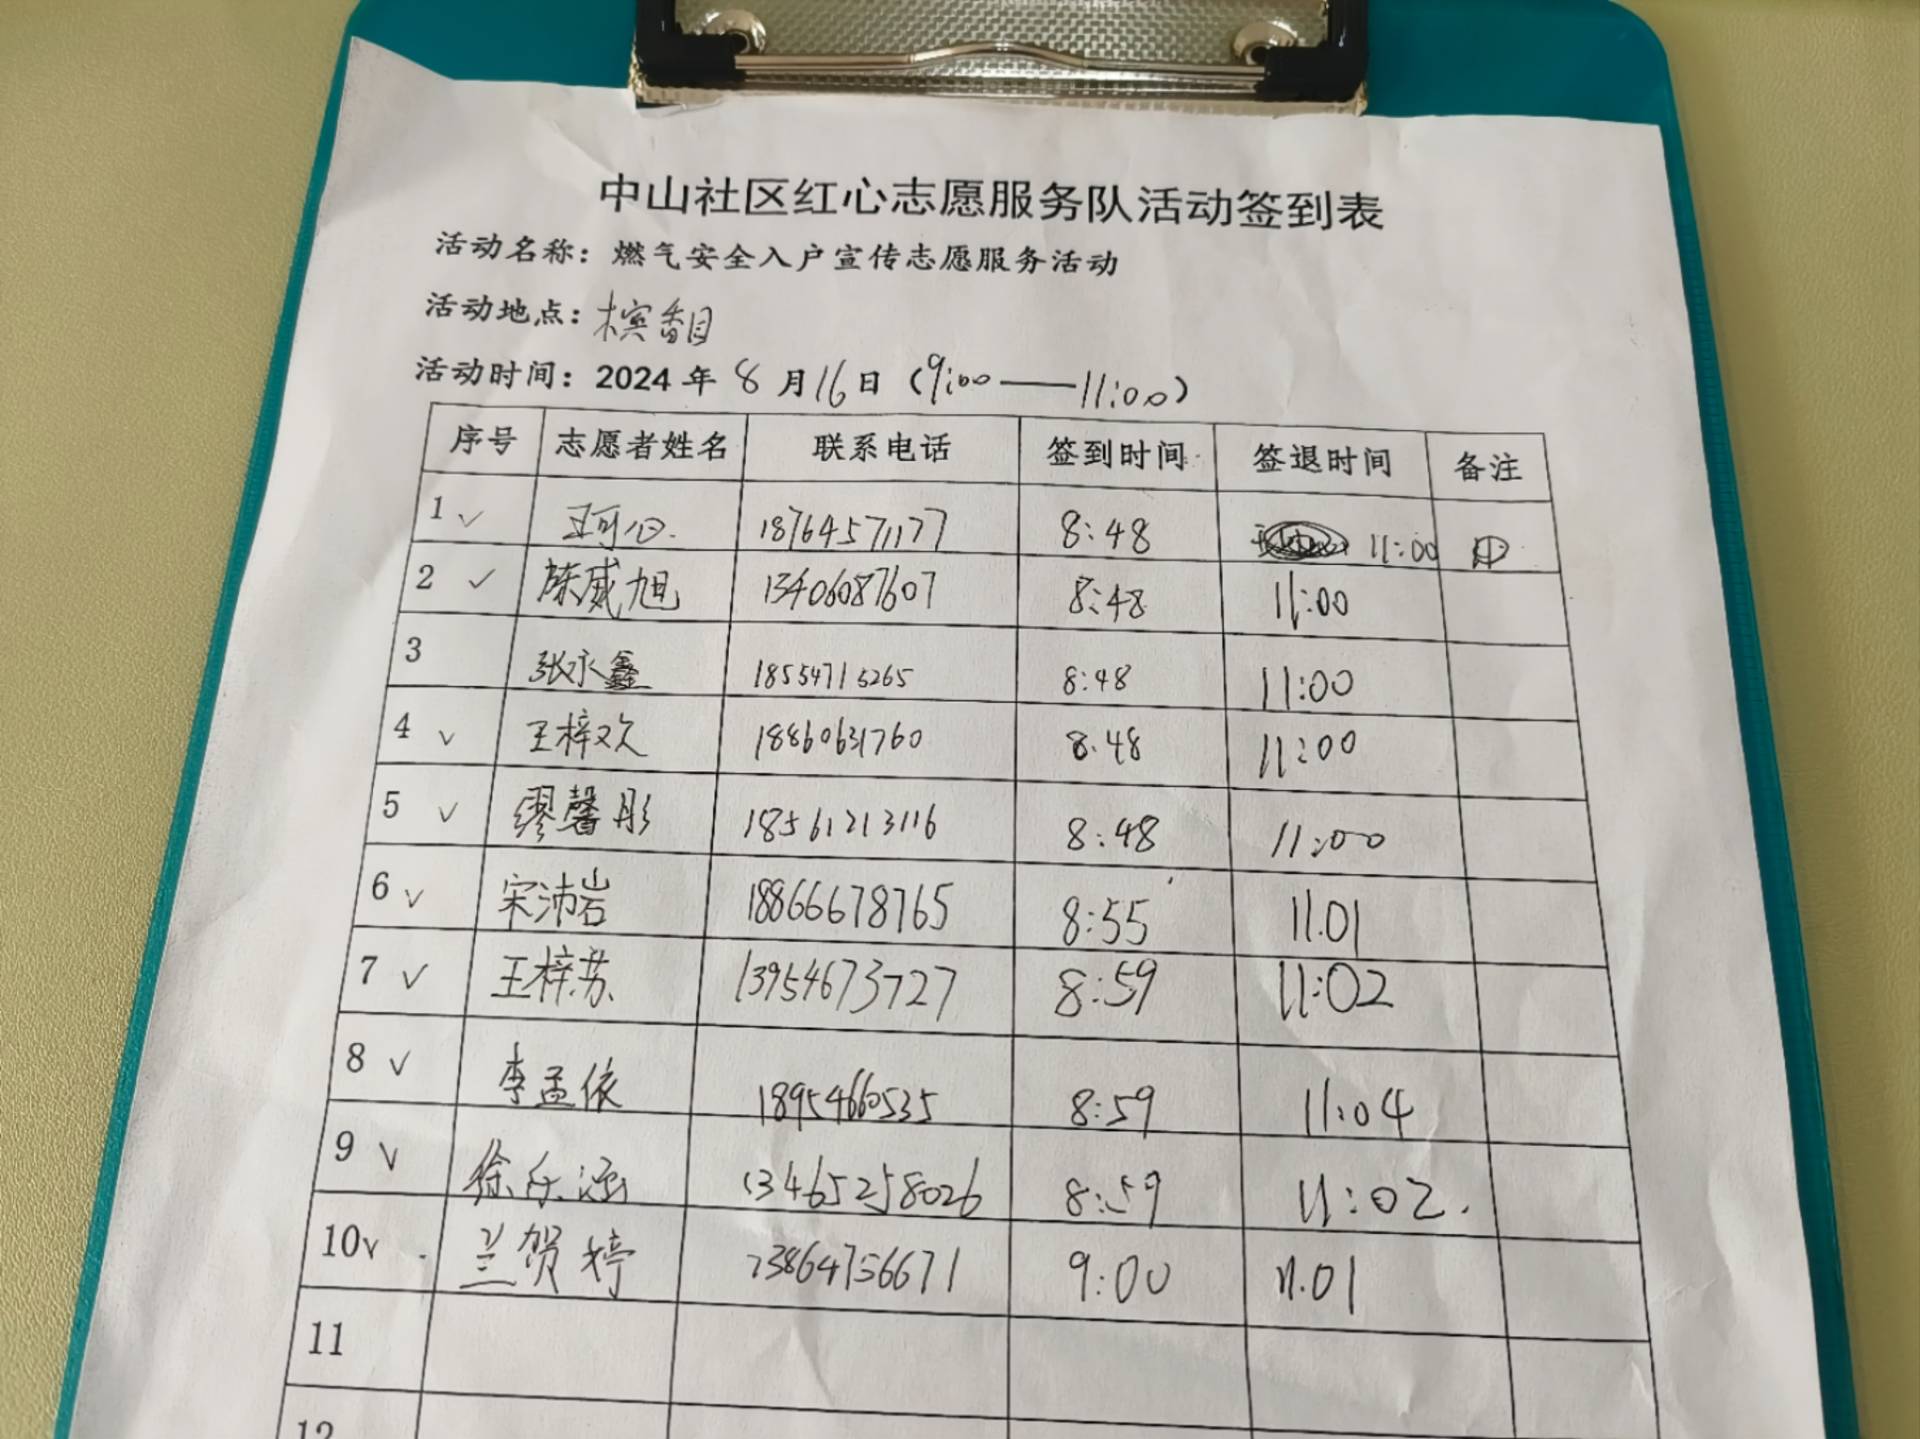 中山社区红心志愿服务队活动签到表
活动名称：燃气安全入户宣传志愿服务活动
活动地点：槟香园
活动时间：2024年8月16日（9:00——11:00）
序号 志愿者姓名 联系电话 签到时间 签退时间 备注
1 ✓ 王可心. 18764571177 8:48 11:00
2 ✓ 陈威旭 13406087607 8:48 11:00
3 张永鑫 18554715265 8:48 11:00
4 ✓ 王梓欢 18860631760 8:48 11:00
5 ✓ 缪馨彤 18561213116 8:48 11:00
6 ✓ 宋沛岩 18866678765 8:55 11.01
7 ✓ 王梓苏 13954673727 8:59 11:02
8 ✓ 李孟依 18954660535 8:59 11:04
9 ✓ 徐乐涵 13465258026 8:59 11:02.
10 ✓ 兰贺婷 13864756671 9:00 11.01
11
12